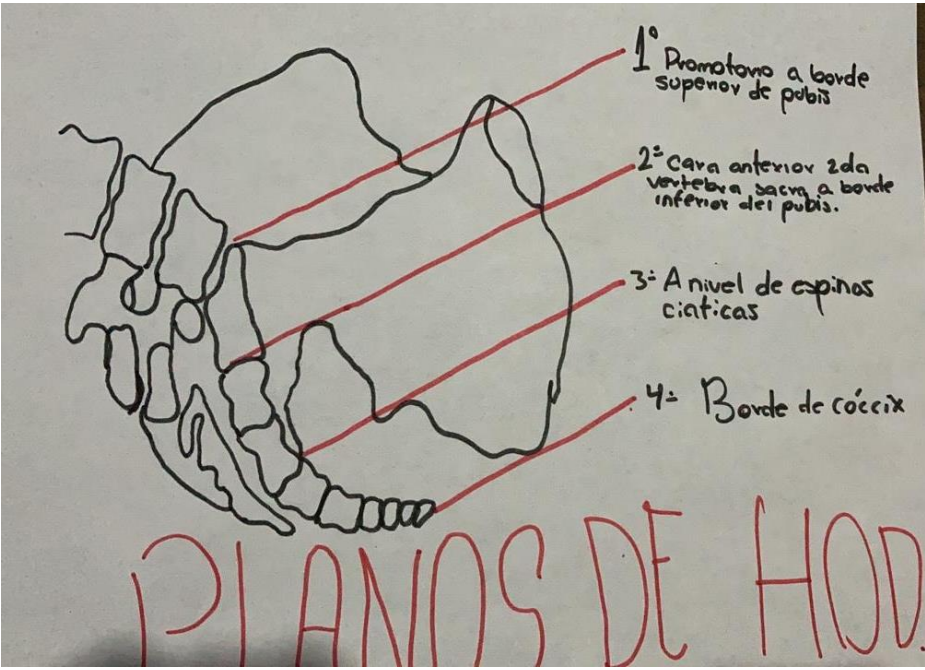 1° Promotorio a borde
superior de pubis
2= Cara anterior 2da
vertebra sacra a borde
inferior del pubis.
3= A nivel de espinas
ciaticas
4= Borde de cóccix
PLANOS DE HOD